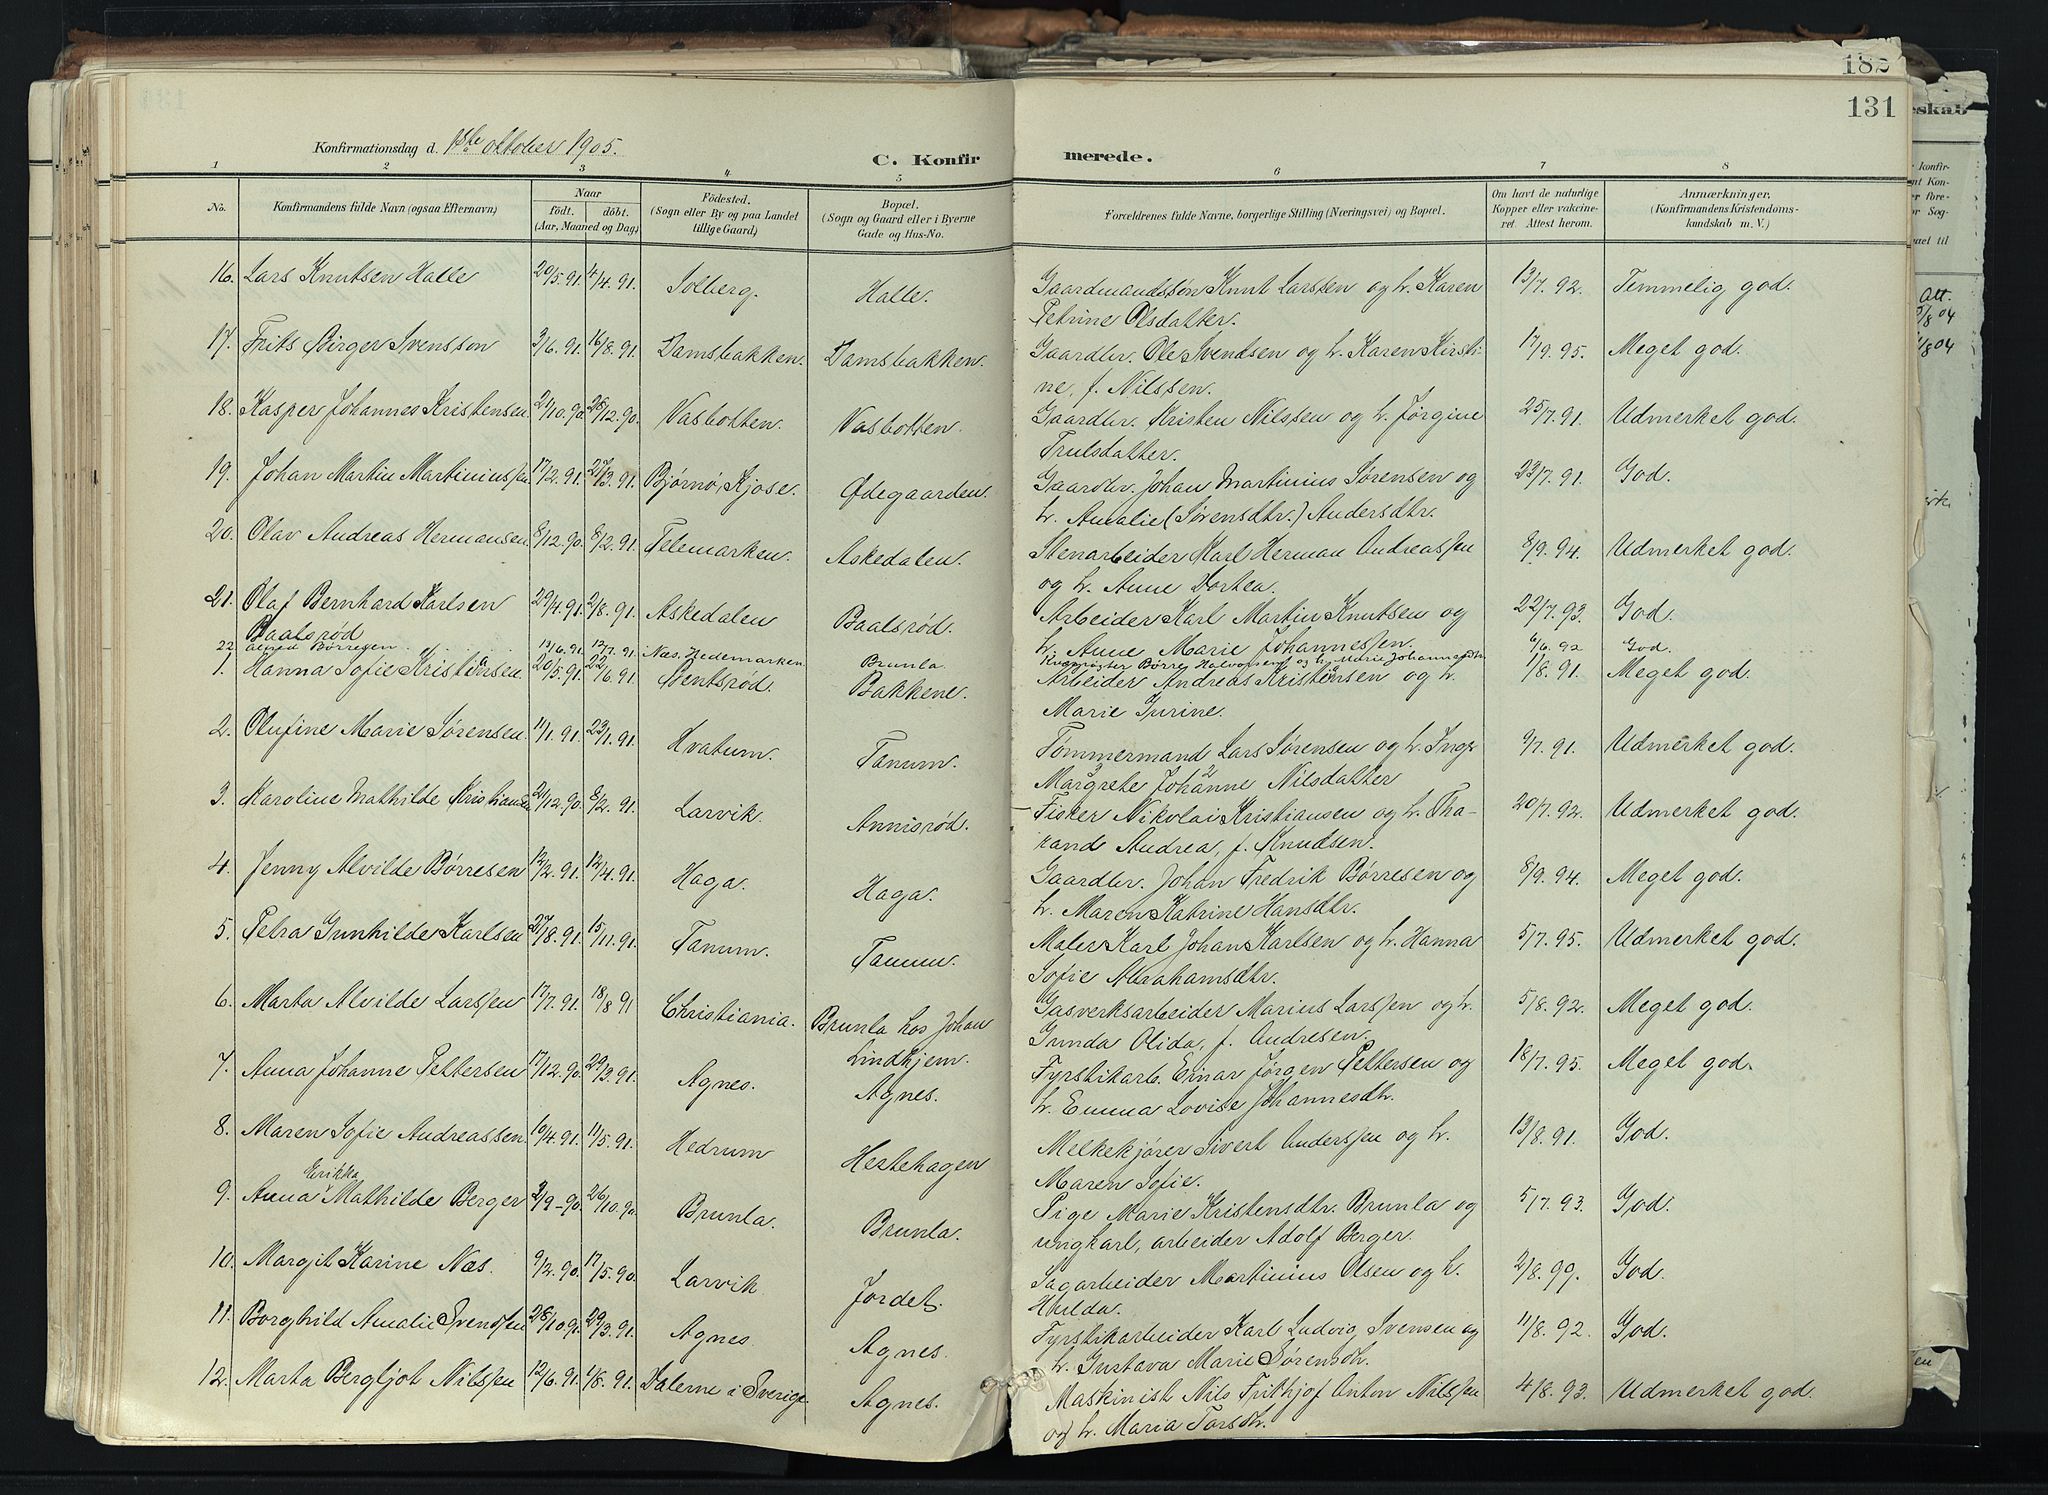 182
131
Konfirmationsdag d. 1ste oktober 1905.
C. Konfir
merede.
1 2 3 4 5 6 7 8
No. Konfirmandens fulde Navn (ogsaa Efternavn) Naar födt. döbt. (Aar, Maaned og Dag) Födested. (Sogn eller By og paa Landet tillige Gaard) Bopæl. (Sogn og Gaard eller i Byerne Gade og Hus-No. Forældrenes fulde Navne, borgerlige Stilling (Næringsvei) og Bopæl. Om havt de naturlige Kopper eller vakcineret. Attest herom. Anmærkninger, (Konfirmandens Kristendomskundskab m. V.)
16. Lars Knutsen Halle 20/5.91. 4/4.91. Solberg. Halle. Gaardmandssøn Knut Larssen og h. Karen 13/7.92. Temmelig god.
Petrine Olsdatter.
17. Frits Birger Svensson 3/6.91. 16/8.91. Damsbakken. Damsbakken. Gaardbr. Ole Svendsen og h. Karen Kirsti- 17/9.95. Meget god.
ne, f. Nilssen.
18. Kasper Johannes Kristensen 21/10.90. 28/12.90. Vasbotten. Vasbotten. Gaardbr. Kristen Nilssen og h. Jørgine 25/7.91. Udmerket god.
Trulsdatter.
19. Johan Martin Martiniussen 17/2.91. 27/3.91. Bjørnø, Kjose. Ødegaarden. Gaardbr. Johan Martinius Sørensen og 23/7.91. God.
h. Amalie (Sørensdtr.) Andersdtr.
20. Olav Andreas Hermansen 8/12.90. 8/2.91. Telemarken. Askedalen. Stenarbeider Karl Herman Andreassen 8/9.94. Udmerket god.
og h. Anne Dortea.
21. Olaf Bernhard Karlsen 29/4.91. 2/8.91. Askedalen Baalsrød. Arbeider Karl Martin Knutsen og 22/7.93. God.
Baalsrød h. Anne Marie Johannessen.
22. Alfred Børresen 13/6.91. 12/7.91. Næs. Hedemarken Brunla. Børre Halvorsen og h. Marie Johannesdtr. 6/6.92 God.
1. Hanna Sofie Kristiansen 20/5.91. 22/6.91. Bentsrød. Bakkene. Arbeider Andreas Kristiansen og h. 1/8.91. Meget god.
Marie Jurine.
2. Olufine Marie Sørensen 11/1.91. 23/1.91. Hvatum. Tanum. Tømmermand Lars Sørensen og h. Inger 9/7.91. Udmerket god.
Margrete Johanne Nilsdatter
3. Karoline Mathilde Kristiansen 21/12.90. 8/2.91. Larvik. Annisrød. Fisker Nikolai Kristiansen og h. Tha- 20/7.92. Udmerket god.
rand Andrea, f. Knudsen.
4. Jenny Alvilde Børresen 12/2.91. 12/4.91. Haga. Haga. Gaardbr. Johan Fredrik Børresen og 8/9.94. Meget god.
h. Maren Katrine Hansdtr.
5. Petra Gunhilde Karlsen 27/8.91. 15/11.91. Tanum. Tanum. Maler Karl Johan Karlsen og h. Hanna 5/7.95. Udmerket god.
Sofie Abrahamsdtr.
6. Marta Alvilde Larssen 17/7.91. 18/8 91 Christiania. Brunla hos Johan Gasverksarbeider Marius Larssen og h. 5/8.92. Meget god.
Lindhjem. Gunda Olida, f. Andresen.
7. Anna Johanne Pettersen 17/12.90. 29/3.91. Agnes. Agnes. Fyrstikarb. Einar Jørgen Pettersen og 18/7.95. Meget god.
h. Emma Lovise Johannesdtr.
8. Maren Sofie Andreassen 10/4.91. 11/5.91. Hedrum Hestehagen Melkekjører Sivert Anderssen og h. 13/8.91. God.
Maren Sofie.
Erikka
9. Anna Mathilde Berger 3/9-90. 26/10.90 Brunla. Brunla. Pige Marie Kristensdtr. Brunla og 5/7.93. God.
ungkarl, arbeider Adolf Berger.
10. Margit Karine Næs. 9/2.90. 17/5.90. Larvik Jordet. Sagarbeider Martinius Olsen og h. 2/8.99. God.
Hulda.
11. Borghild Amalie Svendsen 28/10.90. 29/3.91. Agnes Agnes. Fyrstikarbeider Karl Ludvig Svensen og 11/8.92. God.
h. Gustava Marie Sørensdtr.
12. Marta Bergljot Nilssen 12/6.91. 1/8.91. Dalerne i Sverige. Agnes. Maskinist Nils Frithjof Anton Nilssen 4/8.93. Udmerket god.
og h. Maria Torsdtr.